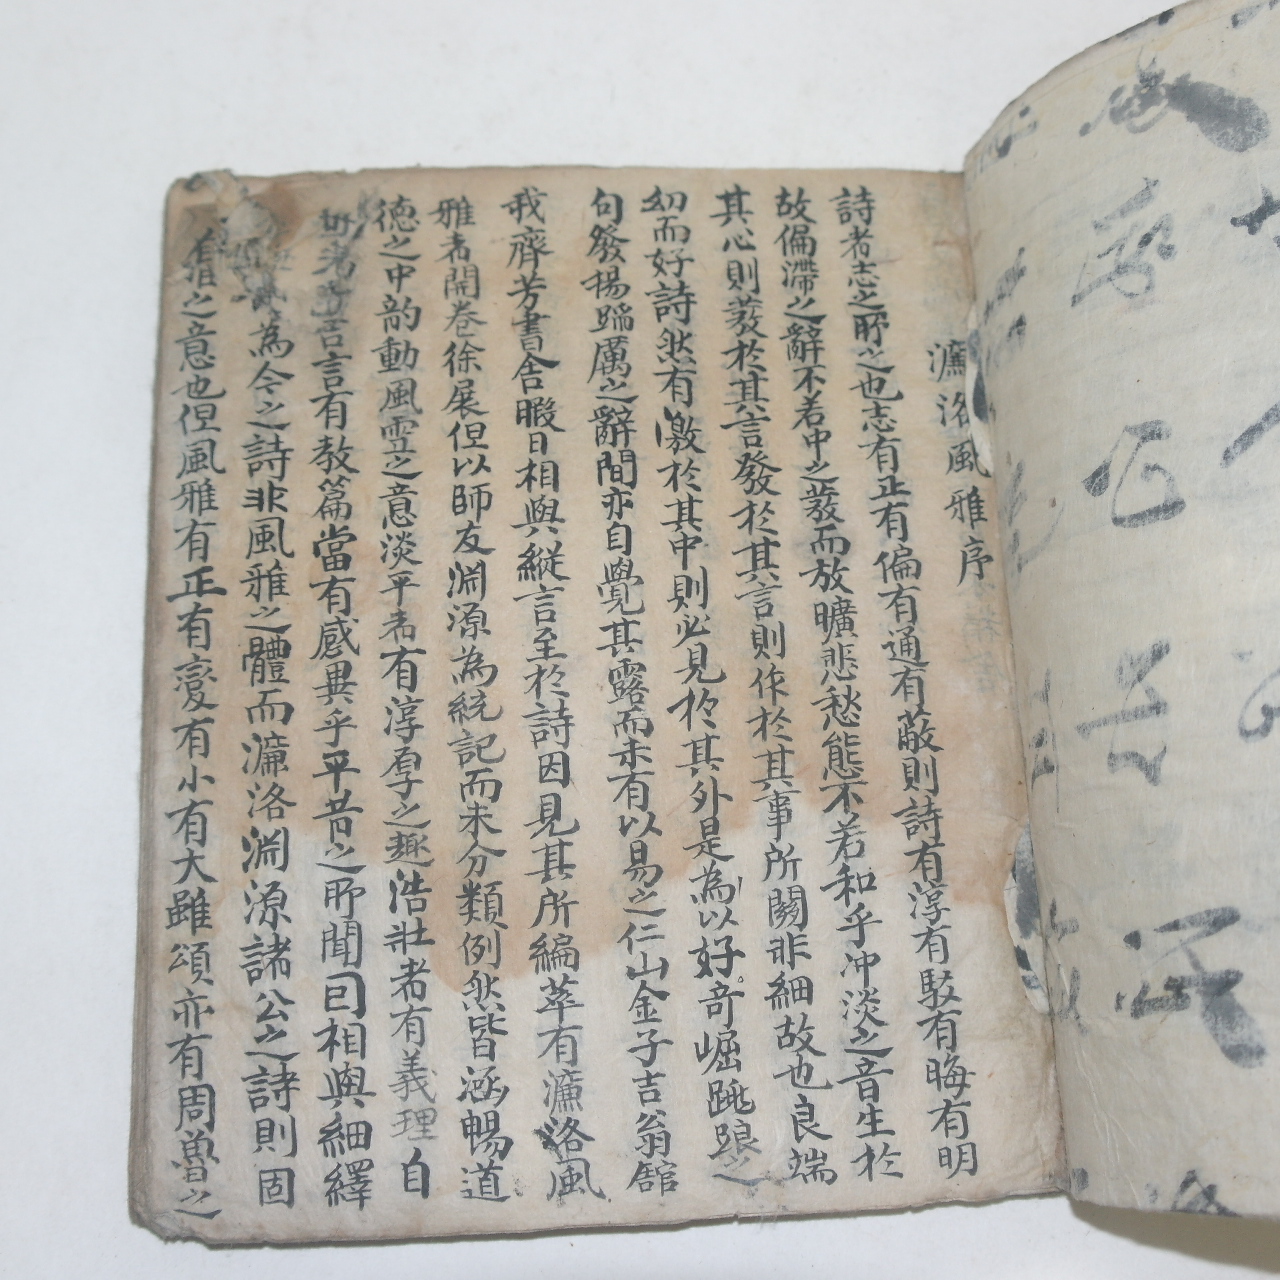 濂洛風雅序
詩者志之所之也志有正有偏有通有蔽則詩有淳有駁有晦有明
故偏滯之辭不若中之發而放曠悲愁態不若和乎冲淡之音生於
其心則發於其言發於其言則作於其事所關非細故也良端
幼而好詩然有激於其中則必見於其外是為以好奇崛跳踉之
句發揚蹈厲之辭間亦自覺其露而未有以易之仁山金子吉翁舘
我齊芳書舍暇日相與縱言至於詩因見其所編萃有濂洛風
雅者開卷徐展但以師友淵源為統記而未分類例然皆涵暢道
德之中韵動風雩之意淡平者有淳厚之趣浩壯者有義理自
言言有教篇當有感異乎平昔之所聞囙相與細繹
為今之詩非風雅之體而濂洛淵源諸公之詩則固
之意也但風雅有正有變有小有大雖頌亦有周魯之